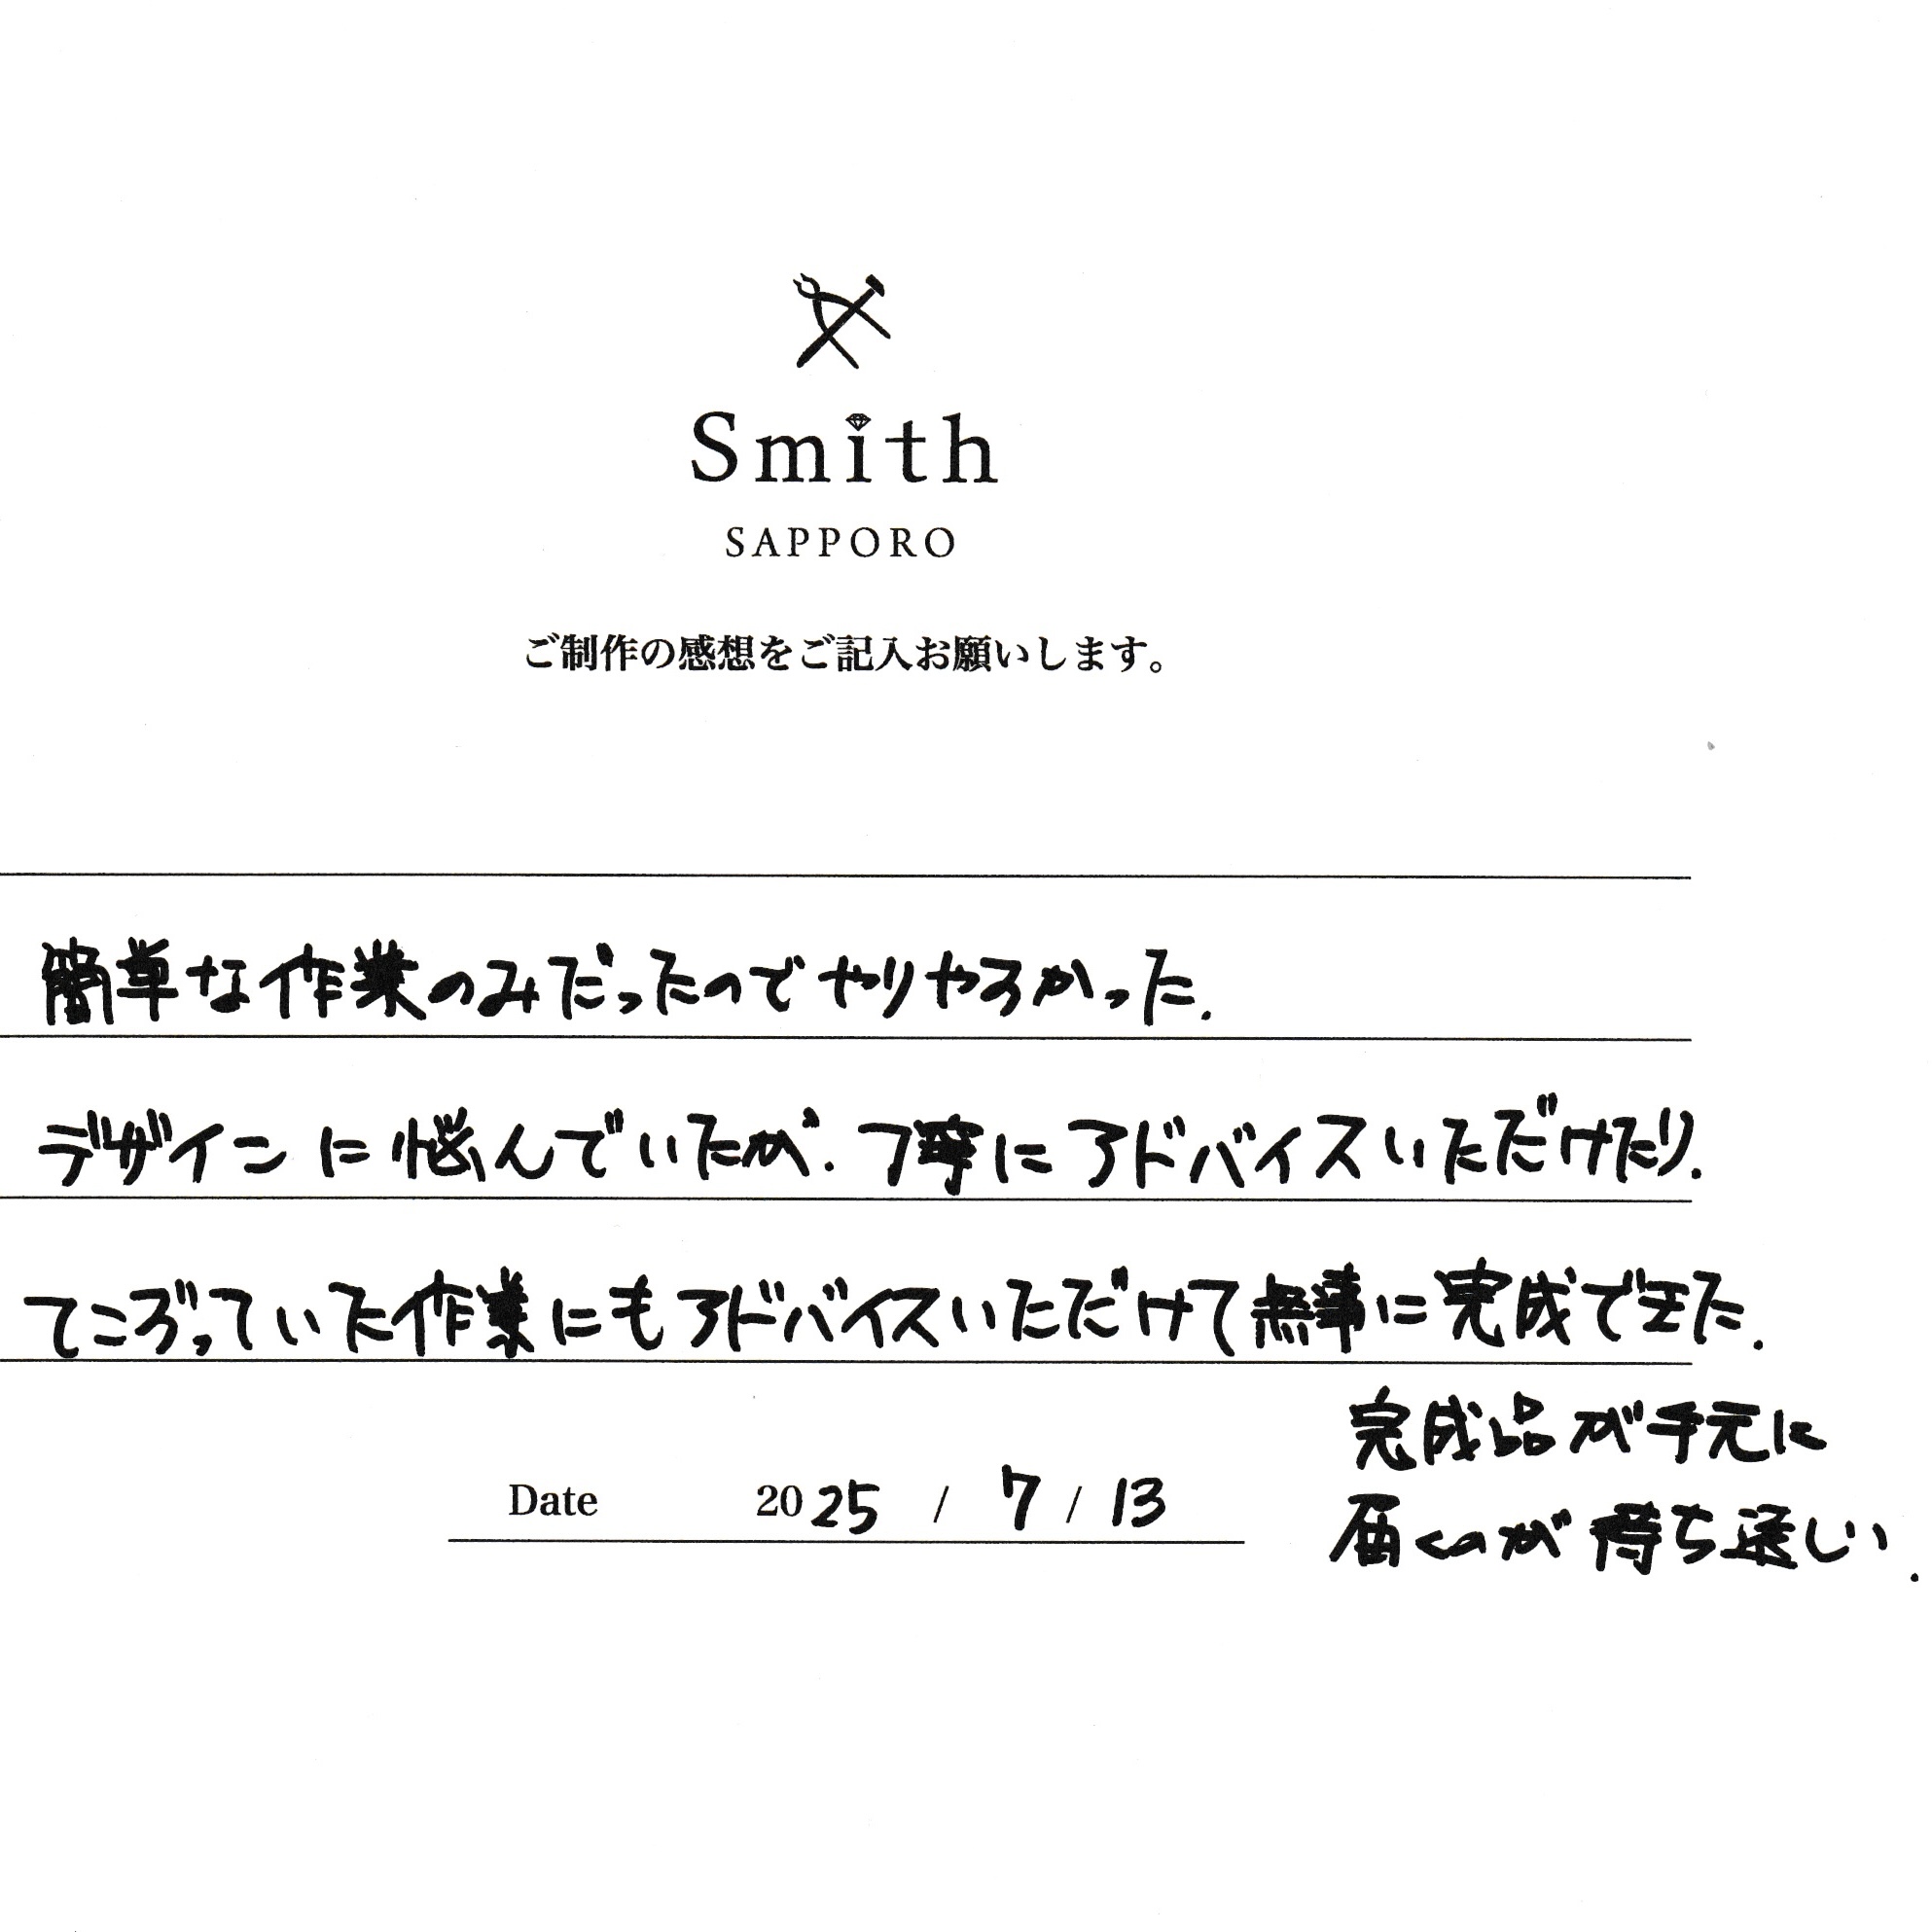 Smith
SAPPORO
ご制作の感想をご記入お願いします。
簡単な作業のみだったのでやりやすかった.
デザインに悩んでいたが.丁寧にアドバイスいただけたり.
てこずっていた作業にもアドバイスいただけて無事に完成できた.
完成品が手元に
届くのが待ち遠しい.
Date 2025 / 7 / 13